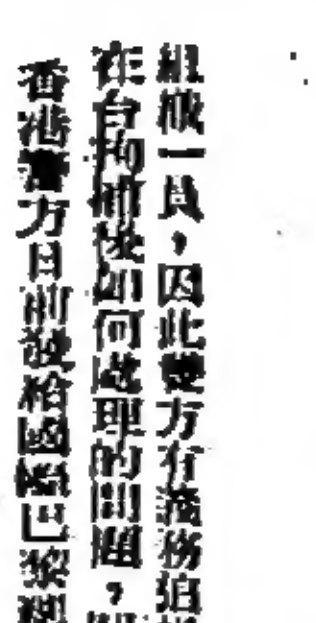 組成一員，因此雙方有義務追
在台拘捕後如何處理的問題，
香港警方日前發給國際巴黎總